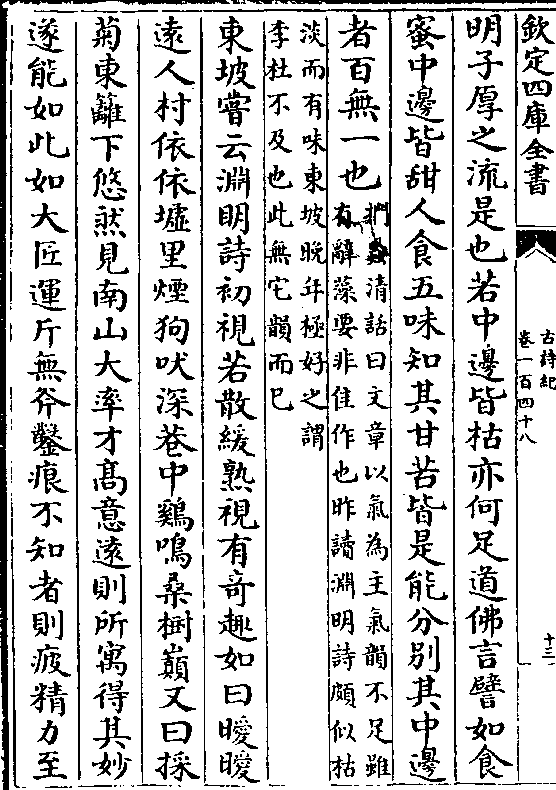 欽定四庫全書
古詩紀
卷一百四十八
十三
明子厚之流是也若中邊皆枯亦何足道佛言譬如食
蜜中邊皆甜人食五味知其甘苦皆是能分別其中邊
者百無一也
捫蝨清話曰文章以氣為主氣韻不足雖
有辭藻要非佳作也昨讀淵明詩頗似枯
淡而有味東坡晚年極好之謂
李杜不及也此無它韻而已
東坡嘗云淵明詩初視若散緩熟視有竒趣如曰曖曖
遠人村依依墟里煙狗吠深巷中鷄鳴桑樹巔又曰採
菊東籬下悠然見南山大率才髙意遠則所寓得其妙
遂能如此如大匠運斤無斧鑿痕不知者則疲精力至